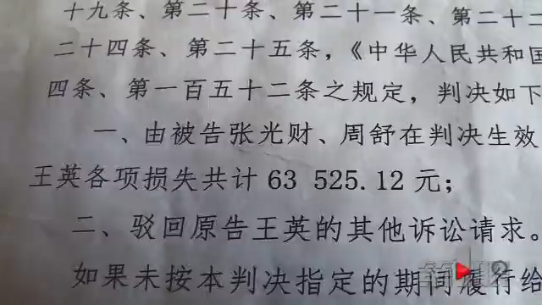 十九条、第二十条、第二十一条、第二十二
二十四条、第二十五条,《中华人民共和国
四条、第一百五十二条之规定,判决如下
一、由被告张光财、周舒在判决生效
王英各项损失共计 63 525.12 元;
二、驳回原告王英的其他诉讼请求。
如果未按本判决指定的期间履行给